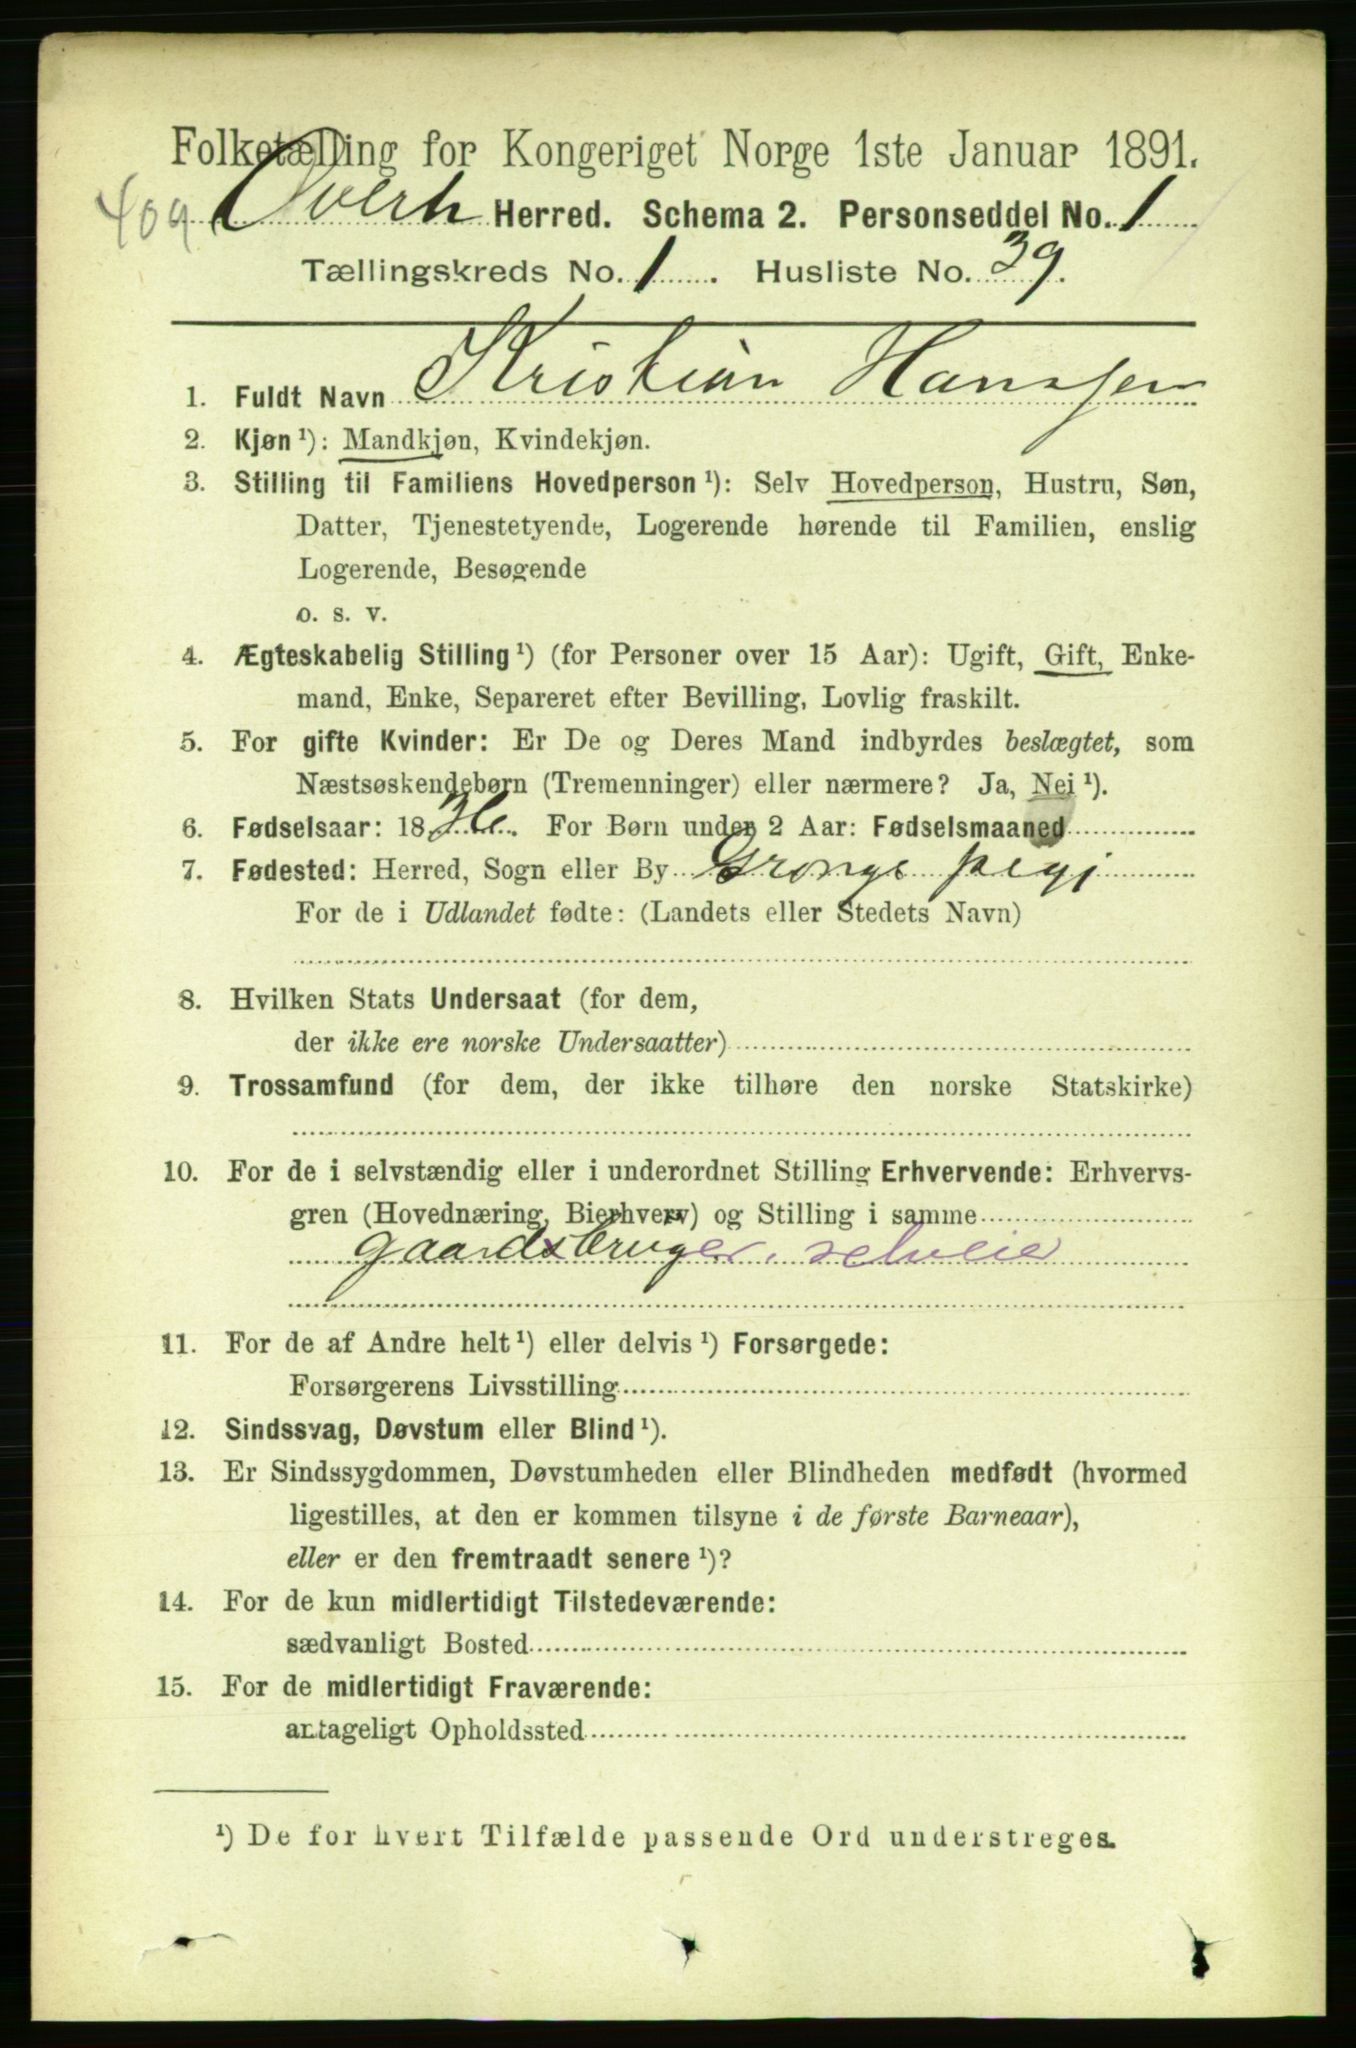 Folketælling for Kongeriget Norge 1ste Januar 1891.
409 Overh Herred. Schema 2. Personseddel No. 1
Tællingskreds No. 1. Husliste No. 39.
1. Fuldt Navn Kristian Hanssen
2. Kjøn ¹): Mandkjøn, Kvindekjøn.
3. Stilling til Familiens Hovedperson ¹): Selv Hovedperson, Hustru, Søn,
Datter, Tjenestetyende, Logerende hørende til Familien, enslig
Logerende, Besøgende
o. s. v.
4. Ægteskabelig Stilling ¹) (for Personer over 15 Aar): Ugift, Gift, Enke-
mand, Enke, Separeret efter Bevilling, Lovlig fraskilt.
5. For gifte Kvinder: Er De og Deres Mand indbyrdes beslægtet, som
Næstsøskendebørn (Tremenninger) eller nærmere? Ja, Nei ¹).
6. Fødselsaar: 18 For Børn under 2 Aar: Fødselsmaaned
7. Fødested: Herred, Sogn eller By
For de i Udlandet fødte: (Landets eller Stedets Navn)
8. Hvilken Stats Undersaat (for dem,
der ikke ere norske Undersaatter)
9. Trossamfund (for dem, der ikke tilhøre den norske Statskirke)
10. For de i selvstændig eller i underordnet Stilling Erhvervende: Erhvervs-
gren (Hovednæring, Bierhverv) og Stilling i samme
gaardsbruger. selveier
11. For de af Andre helt ¹) eller delvis ¹) Forsørgede:
Forsørgerens Livsstilling
12. Sindssvag, Døvstum eller Blind ¹).
13. Er Sindssygdommen, Døvstumheden eller Blindheden medfødt (hvormed
ligestilles, at den er kommen tilsyne i de første Barneaar),
eller er den fremtraadt senere ¹)?
14. For de kun midlertidigt Tilstedeværende:
sædvanligt Bosted
15. For de midlertidigt Fraværende:
antageligt Opholdssted
¹) De for hvert Tilfælde passende Ord understreges.